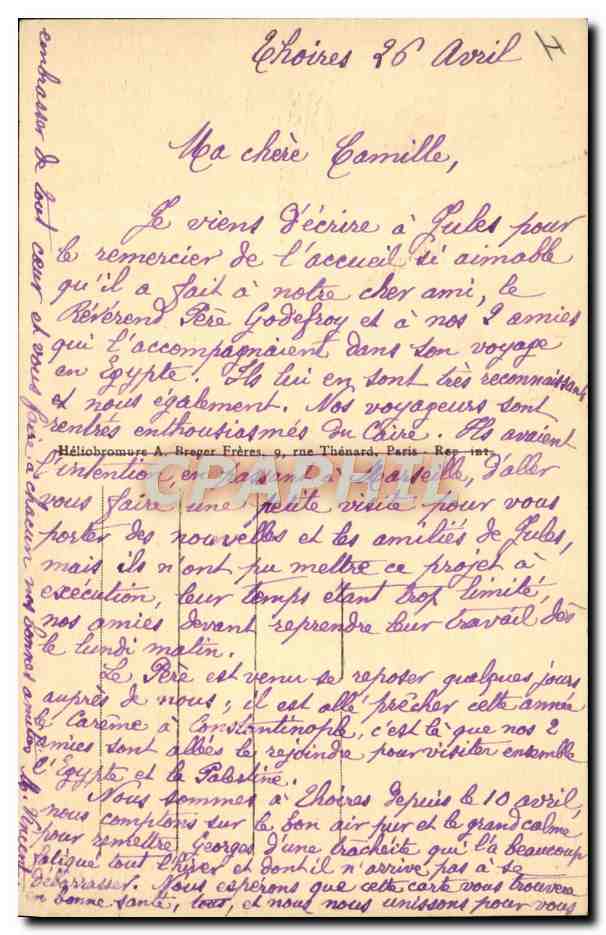 Thoires 26 Avril
I
Ma chère Camille,
Je viens d'écrire à Jules pour
le remercier de l'accueil si aimable
qu'il a fait à notre cher ami, le
Révérend Père Godefroy et à nos 2 amies
qui l'accompagnaient dans son voyage
en Egypte. Ils lui en sont très reconnaissants
et nous également. Nos voyageurs sont
rentrés enthousiasmés du Caire. Ils avaient
Héliobromure A. Breger Frères, 9, rue Thénard, Paris - Rep. int.
l'intention, en passant à Marseille, d'aller
CPARPHIL
vous faire une petite visite pour vous
porter des nouvelles et les amitiés de Jules,
mais ils n'ont pu mettre ce projet à
exécution, leur temps étant trop limité,
nos amies devant reprendre leur travail dès
le lundi matin.
Le Père est venu se reposer quelques jours
auprès de nous; il est allé prêcher cette année
le Carême à Constantinople, c'est là que nos 2
amies sont allées le rejoindre pour visiter ensemble
l'Egypte et la Palestine.
Nous sommes à Thoires depuis le 10 avril,
nous comptons sur le bon air pur et le grand calme
pour remettre Georges d'une trachéite qui l'a beaucoup
fatigué tout l'hiver et dont il n'arrive pas à se
débarrasser. Nous espérons que cette carte vous trouvera
en bonne santé, tous, et nous nous unissons pour vous
embrasser de tout cœur et vous faire à chacun nos bonnes amitiés M. Vincent